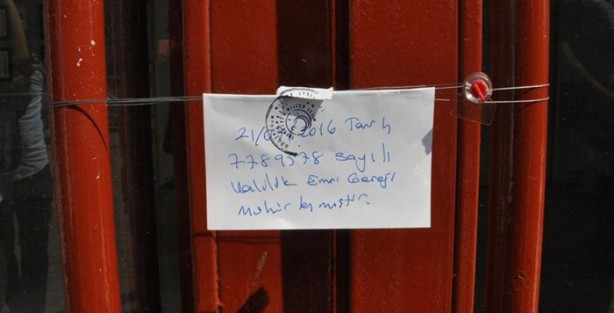 2016 Tarih
7789578 sayılı
Valilik Emri Gereği
Mühürlenmiştir.